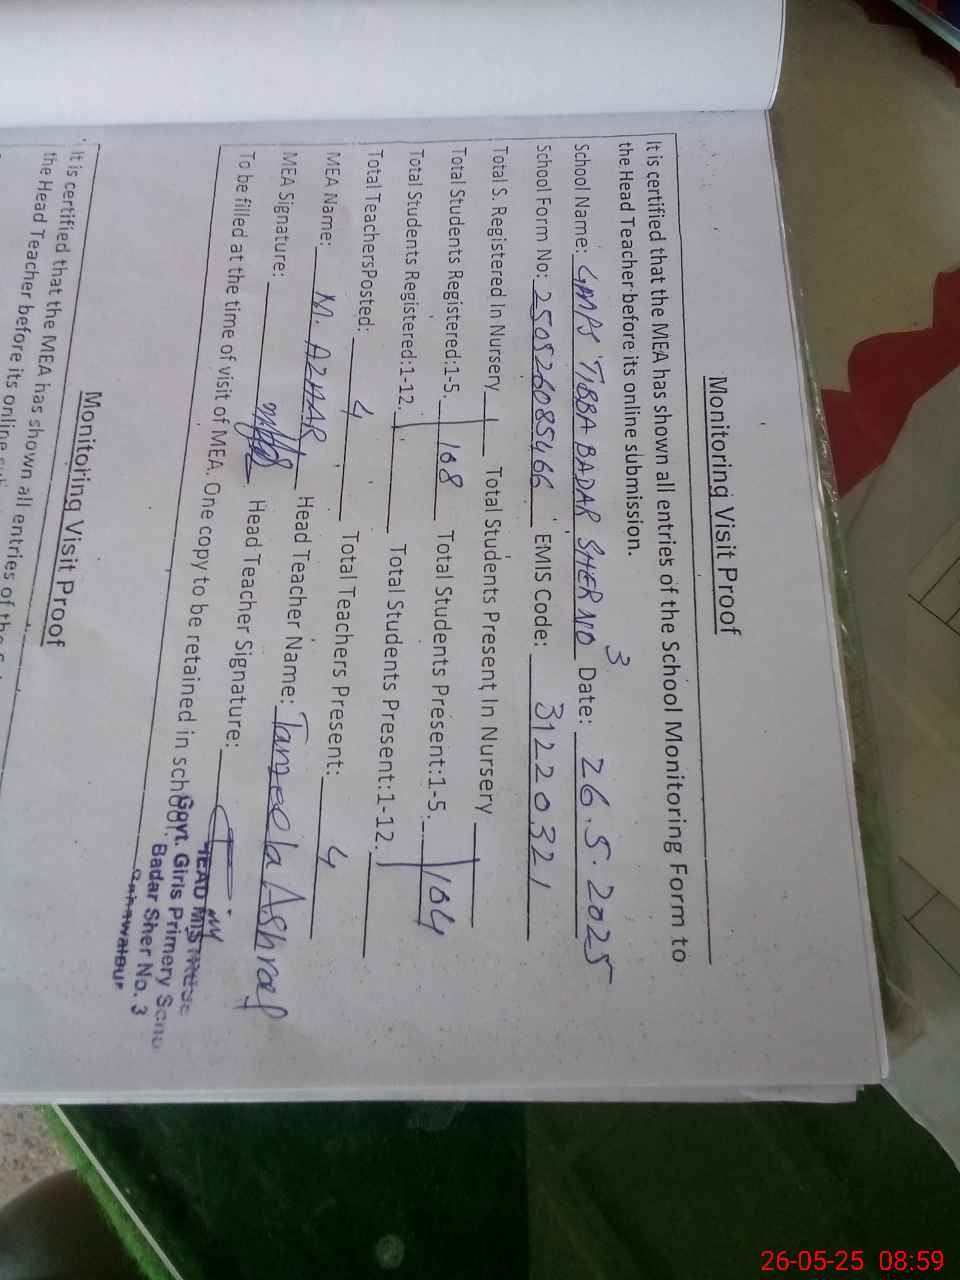 Monitoring Visit Proof
It is certified that the MEA has shown all entries of the School Monitoring Form to
the Head Teacher before its online submission.
School Name: GMPS TIBBA BADAR SHER NO 3 Date: 26.5.2025
School Form No: 250526085466 EMIS Code: 31220321
Total S. Registered In Nursery Total Students Present In Nursery
Total Students Registered:1-5. 108 Total Students Present:1-5. 104
Total Students Registered:1-12. Total Students Present:1-12.
Total TeachersPosted: 4 Total Teachers Present: 4
MEA Name: M. AZHAR Head Teacher Name: Tanzeela Ashraf
MEA Signature: Head Teacher Signature:
To be filled at the time of visit of MEA. One copy to be retained in school.
HEAD MISTRESS
Govt. Girls Primery Schoo
Badar Sher No. 3
Bahawalpur
Monitoring Visit Proof
It is certified that the MEA has shown all entries of the
the Head Teacher before its online
26-05-25 08:59